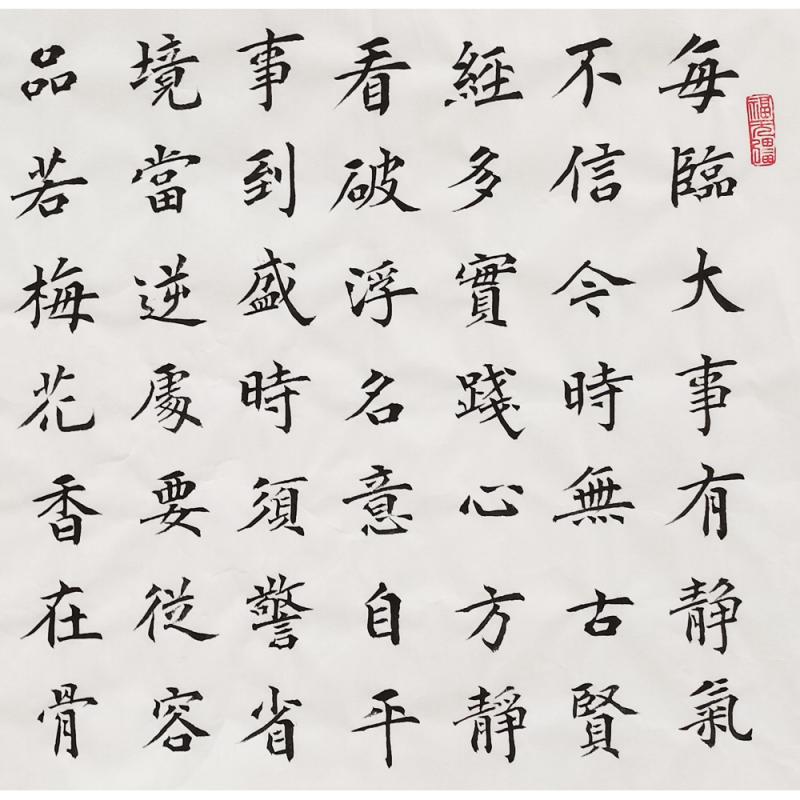 每臨大事有静氣
不信今時無古賢
經多實踐心方靜
看破浮名意自平
事到盛時須警省
境當逆處要從容
品若梅花香在骨